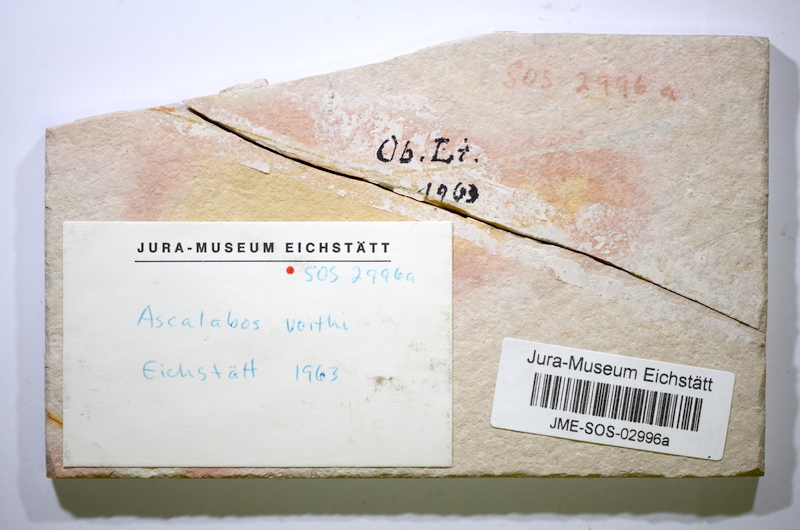 SOS 2996a
Ob. Et.
1963
JURA-MUSEUM EICHSTÄTT
SOS 2996a
Ascalabos voithi
Eichstätt 1963
Jura-Museum Eichstätt
JME-SOS-02996a